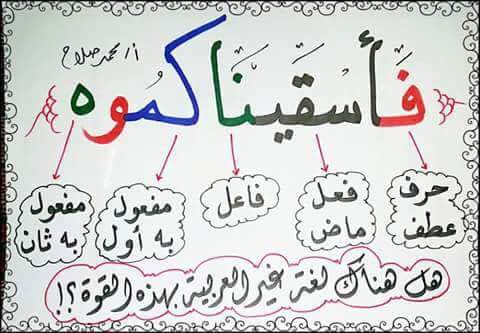 أ/ محمد صلاح
فَأسقينَاكمُوه
حرف عطف
فعل ماض
فاعل
مفعول به أول
مفعول به ثان
هل هناك لغة غير العربية بهذه القوة؟!